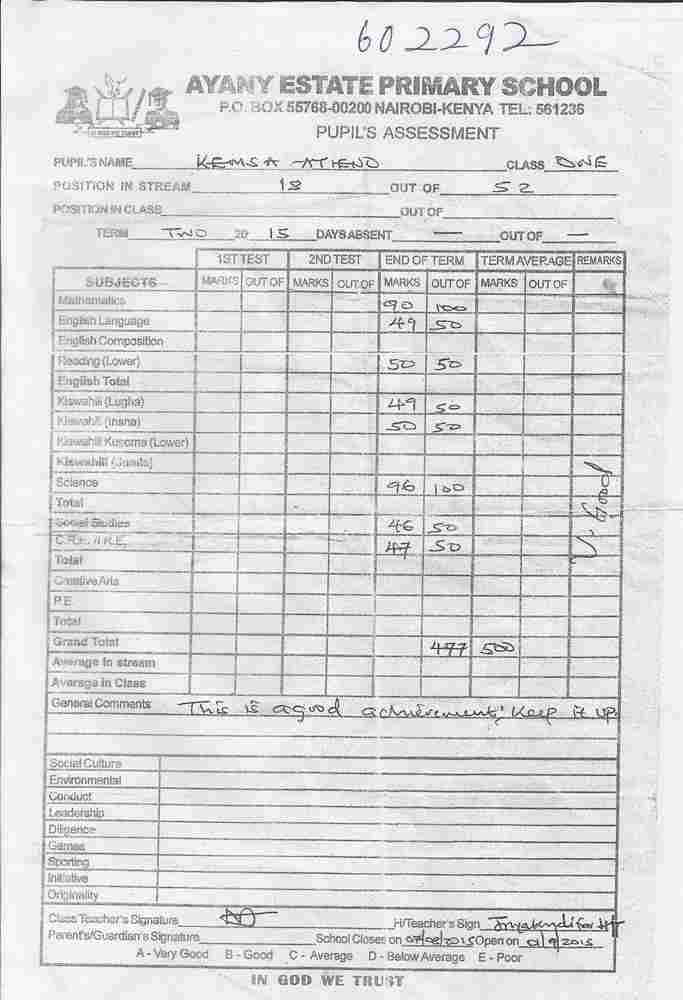 602292
AYANY ESTATE PRIMARY SCHOOL
P.O. BOX 55768-00200 NAIROBI-KENYA TEL: 561236
PUPIL'S ASSESSMENT
PUPIL'S NAME KEMSA ATIENO CLASS ONE
POSITION IN STREAM 18 OUT OF 52
POSITION IN CLASS OUT OF
TERM TWO 20 15 DAYS ABSENT — OUT OF —
1ST TEST 2ND TEST END OF TERM TERM AVERAGE REMARKS
SUBJECTS MARKS OUT OF MARKS OUT OF MARKS OUT OF MARKS OUT OF
Mathematics 90 100
English Language 49 50
English Composition
Reading (Lower) 50 50
English Total
Kiswahili (Lugha) 49 50
Kiswahili (Insha) 50 50
Kiswahili Kusoma (Lower)
Kiswahili (Jumla)
Science 96 100
V. Good
Total
Social Studies 46 50
C.R.E. /I.R.E. 47 50
Total
Creative Arts
P.E
Total
Grand Total 477 500
Average in stream
Average in Class
General Comments This is agood achievement! Keep it up
Social Culture
Environmental
Conduct
Leadership
Diligence
Games
Sporting
Initiative
Originality
Class Teacher's Signature H/Teacher's Sign for H/T
Parent's/Guardian's Signature School Closes on 07/08/2015 Open on 01/9/2015
A - Very Good B - Good C - Average D - Below Average E - Poor
IN GOD WE TRUST